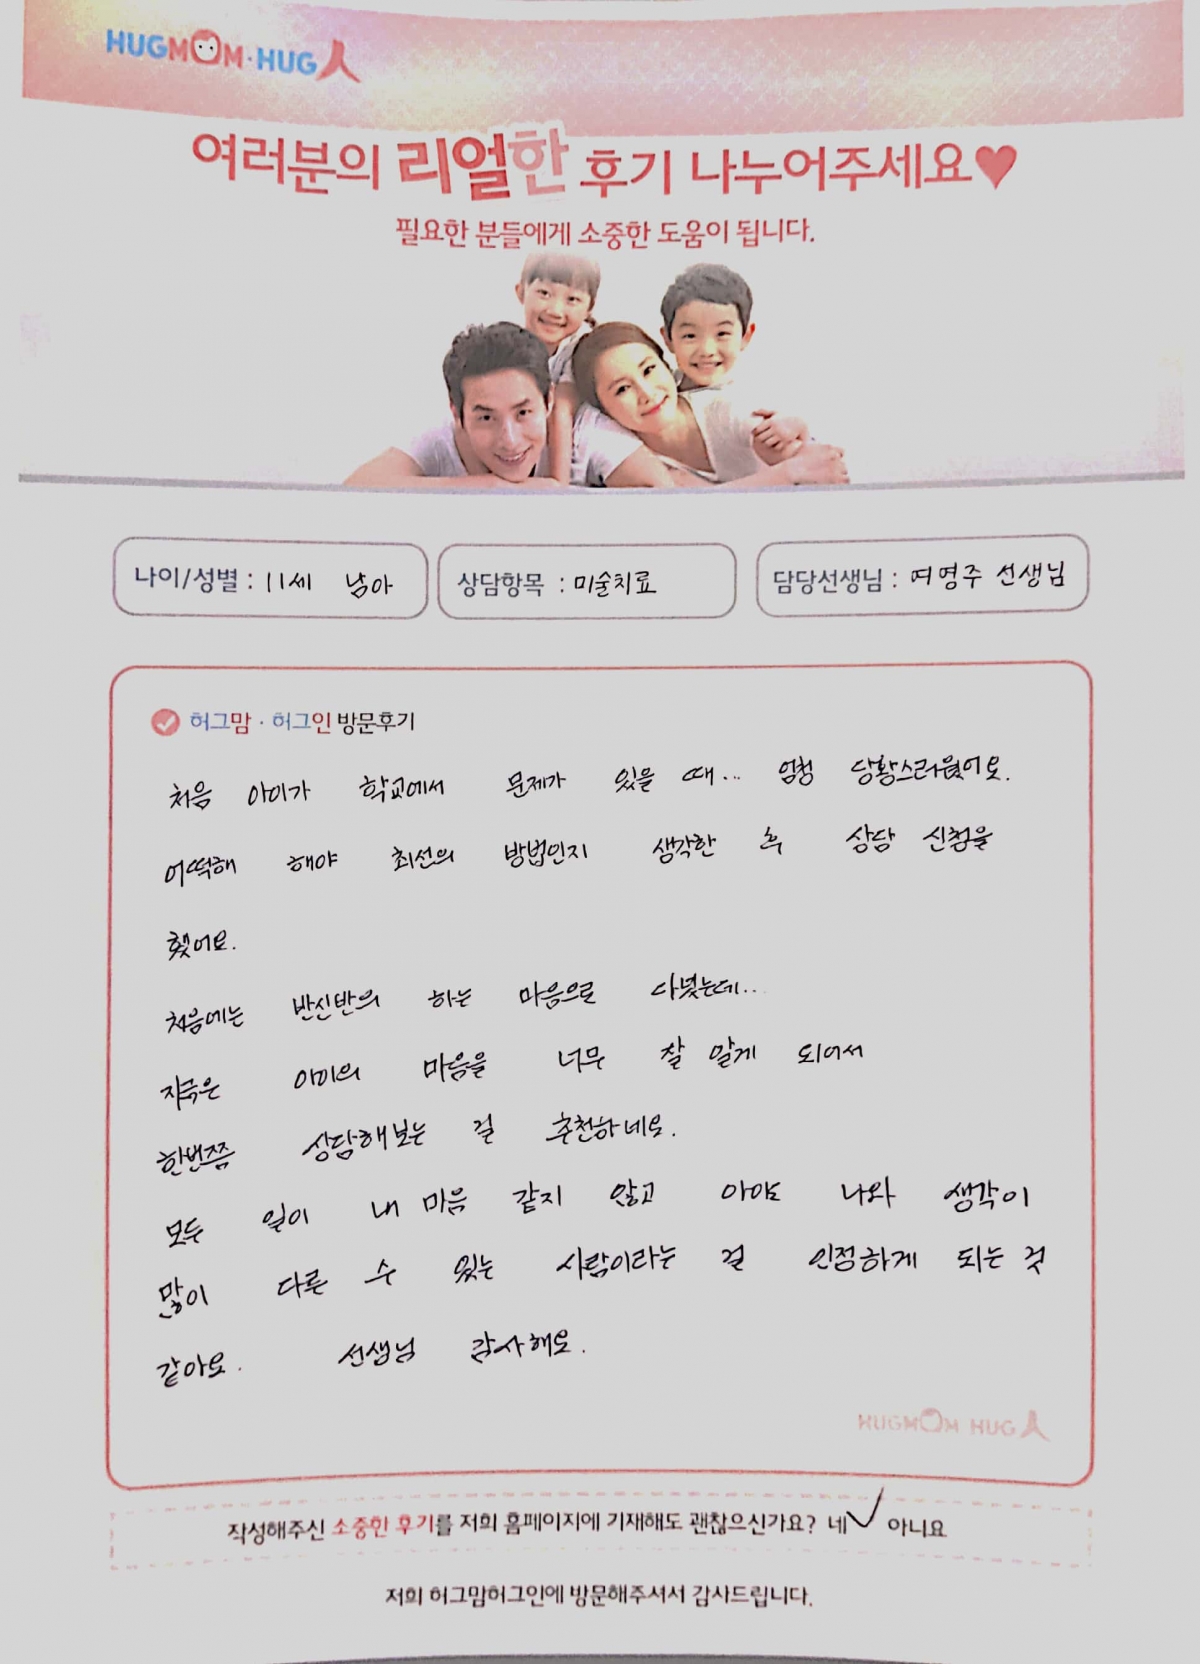 HUGMOM·HUG人
여러분의 리얼한 후기 나누어주세요♥
필요한 분들에게 소중한 도움이 됩니다.
나이/성별 : 11세 남아
상담항목 : 미술치료
담당선생님 : 여영주 선생님
허그맘 · 허그인 방문후기
처음 아이가 학교에서 문제가 있을 때... 엄청 당황스러웠어요.
어떡해 해야 최선의 방법인지 생각한 후 상담 신청을
했어요.
처음에는 반신반의 하는 마음으로 다녔는데...
지금은 아이의 마음을 너무 잘 알게 되어서
한번쯤 상담해보는 걸 추천하네요.
모두 일이 내 마음 같지 않고 아이도 나와 생각이
많이 다른 수 있는 사람이라는 걸 인정하게 되는 것
같아요. 선생님 감사해요.
HUGMOM HUG人
작성해주신 소중한 후기를 저희 홈페이지에 기재해도 괜찮으신가요? 네✓ 아니요
저희 허그맘허그인에 방문해주셔서 감사드립니다.